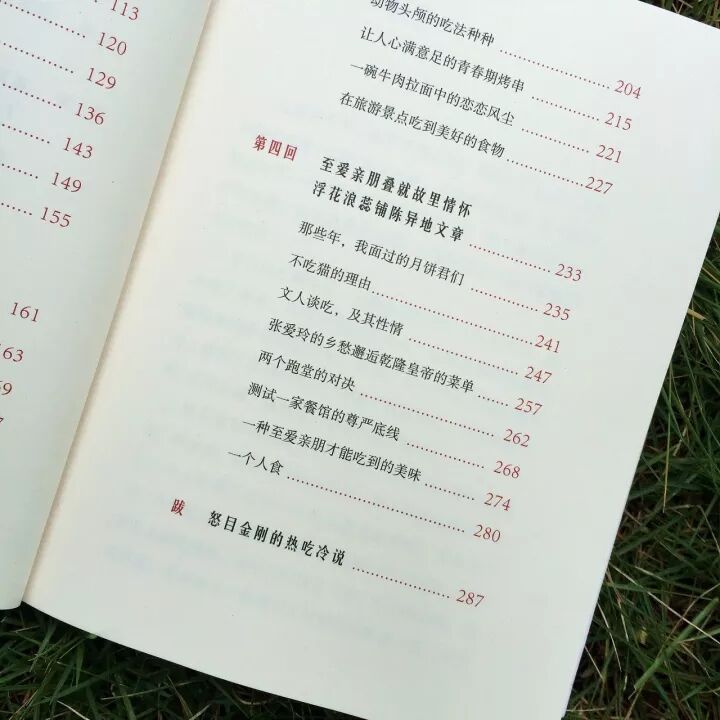 113
120
129
136
143
149
155
161
163
动物头颅的吃法种种 204
让人心满意足的青春期烤串 215
一碗牛肉拉面中的恋恋风尘 221
在旅游景点吃到美好的食物 227
第四回 至爱亲朋叠就故里情怀
浮花浪蕊铺陈异地文章 233
那些年，我面过的月饼君们 235
不吃猫的理由 241
文人谈吃，及其性情 247
张爱玲的乡愁邂逅乾隆皇帝的菜单 257
两个跑堂的对决 262
测试一家餐馆的尊严底线 268
一种至爱亲朋才能吃到的美味 274
一个人食 280
跋 怒目金刚的热吃冷说 287